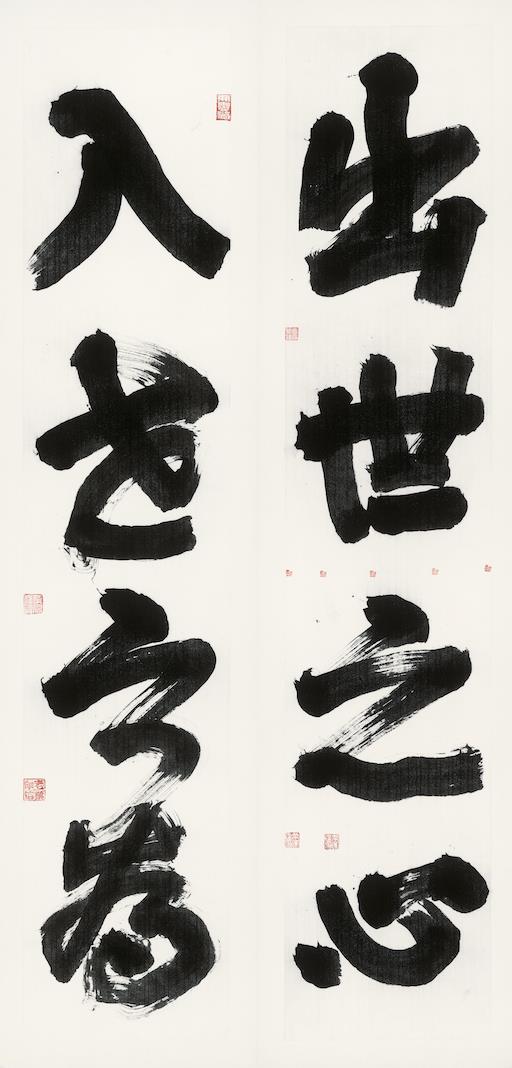 出世之心
入世之為